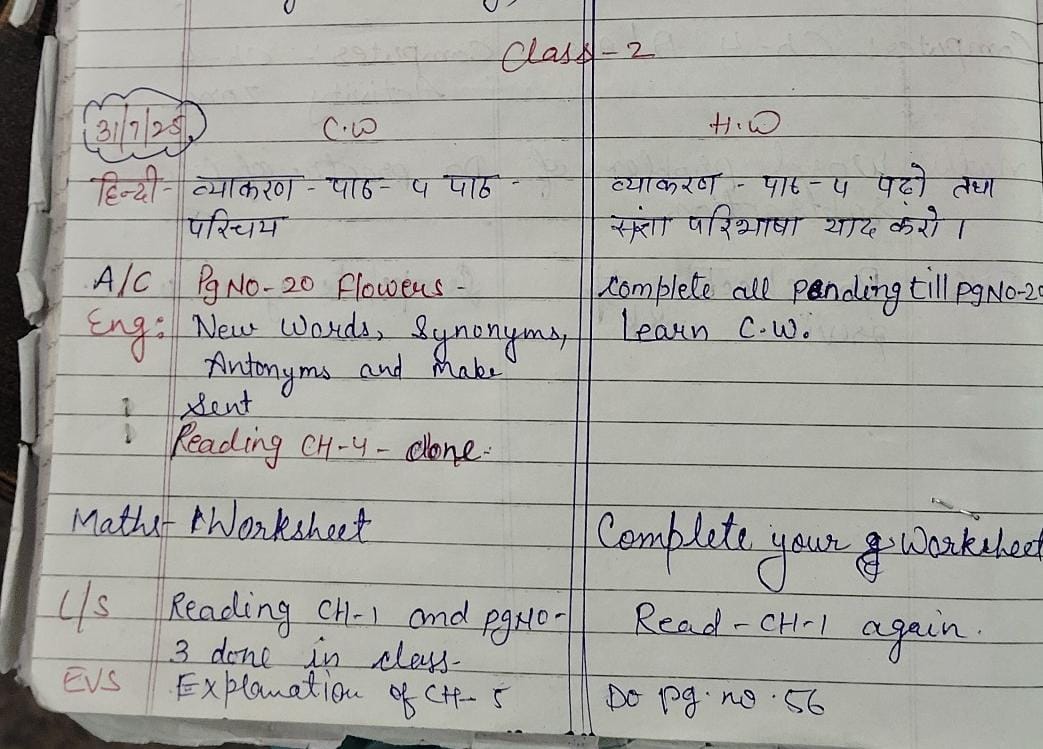 Class-2
31/7/25 C.W H.W
हिन्दी- व्याकरण - पाठ- 5 पाठ - व्याकरण - पाठ-5 पढ़ो तथा
परिचय संज्ञा परिभाषा याद करो ।
A/C Pg No-20 Flowers - Complete all pending till pg No-20
Eng: New Words, Synonyms, Learn C.W.
Antonyms and Make
Sent
Reading CH-4- done.
Maths- Worksheet Complete your Worksheet
L/S Reading CH-1 and pg No- Read-CH-1 again.
3 done in class-
EVS Explanation of CH-5 Do pg. no. 56